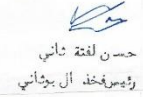 حسن لفتة ثاني
رئيس فخذ آل بوثاني